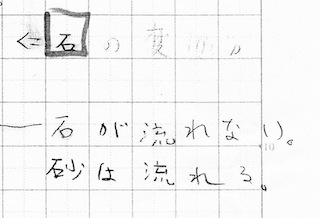 ⇐石の変
石が流れない。
砂は流れる。